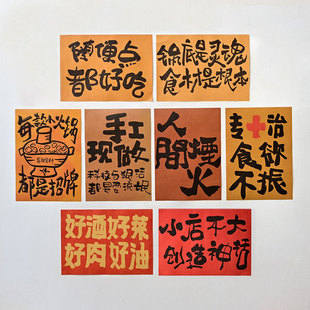 随便点
都好吃
锅底是灵魂
食材是根本
每款小火锅
都是招牌
手工
现做
人
間煙
火
专治
食欲
不振
好酒好菜
好肉好油
小店不大
创造神话